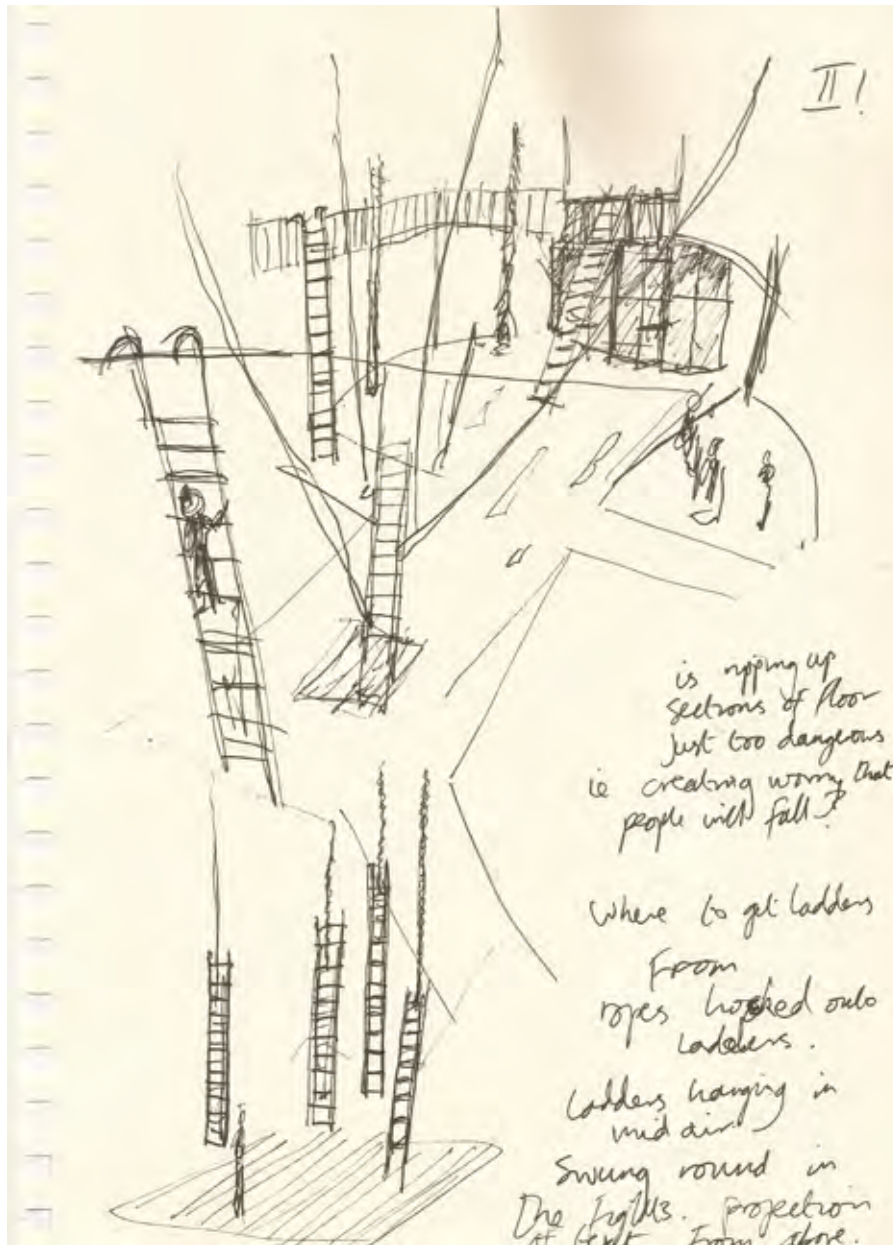 II!
is ripping up
sections of floor
just too dangerous
ie creating worry that
people will fall?
Where to get ladders
From
ropes hooked onto
Ladders.
Ladders hanging in
mid air
Swung round in
The fights. projection
of text From above.